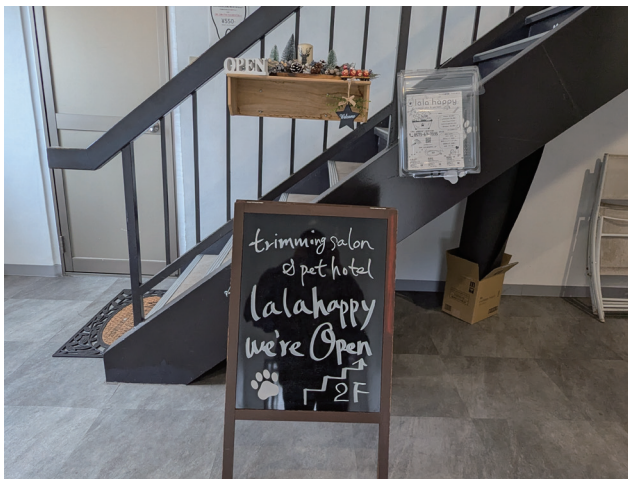 OPEN
Welcome
lala happy
trimming salon
& pet hotel
lalahappy
we're Open
2F